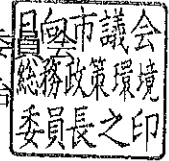 日向市議会
総務政策環境
委員長之印